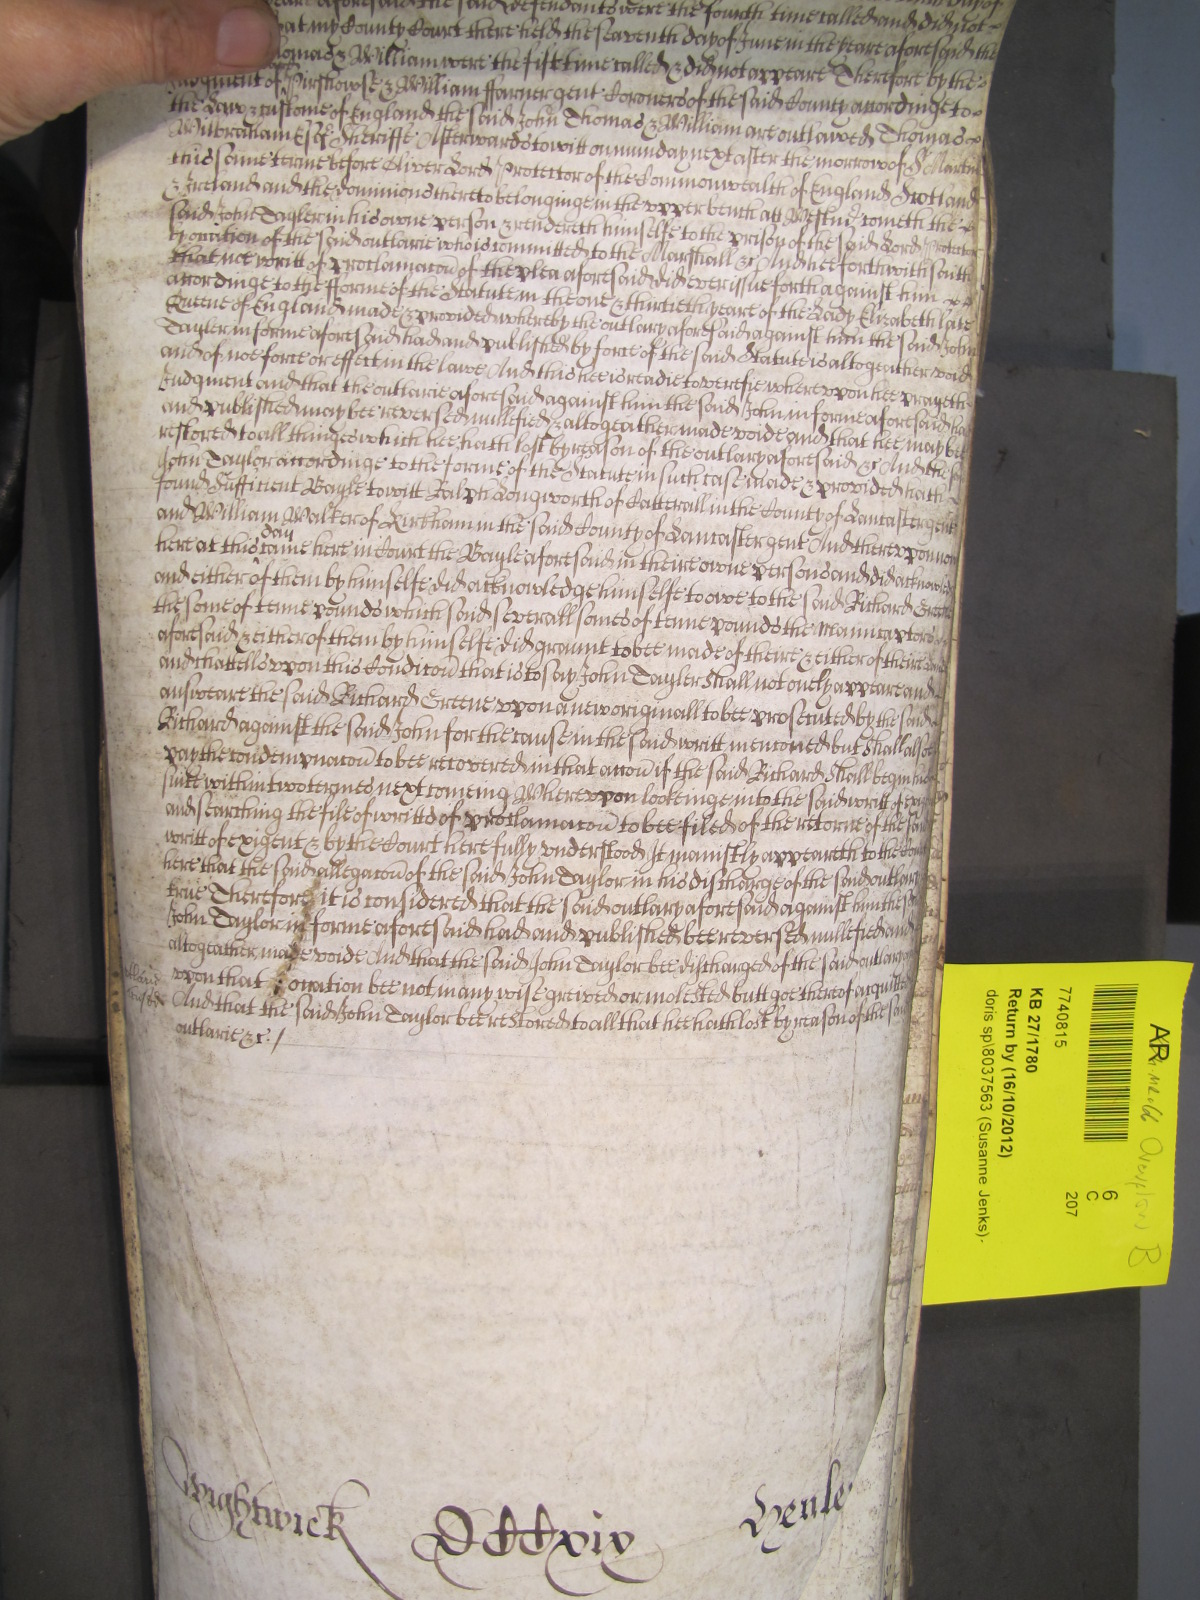 yeare aforesaid the said Defendants were the fourth time called and did not
at my County Court there held the seaventh day of June in the yeare aforesaid the
Thomas & William were the fift time called & did not appeare Therefore by the
Judgment of Pirshowse & William ffarner gent Coroners of the said County accordinge to
the Law & custome of England the said John Thomas & William are outlawed Thomas
Wilbraham Esqr Sheriffe Afterwards to witt on munday next after the morrow of St Martin
this same terme before Oliver Lord Protector of the Commonwealth of England Scotland
& Ireland and the dominions thereto belonginge in the upper bench att Westmr cometh the
said John Tayler in his owne person & rendereth himselfe to the prison of the said Lord Protector
by occation of the said outlarie who is committed to the Marshall &c And hee forthwith saith
that noe writt of proclamacon of the plea aforesaid did ever issue forth against him
accordinge to the fforme of the Statute in the one & thirtieth yeare of the Lady Elizabeth late
Queene of England made & provided whereby the outlary aforesaid against him the said John
Tayler in forme aforesaid had and published by force of the said Statute is altogeather void
and of noe force or effect in the lawe And this hee is readie to verefie whereupon hee prayeth
Judgment and that the outlarie aforesaid against him the said John in forme aforesaid had
and published may bee reversed nullefied & altogeather made voide and that hee may bee
restored to all thinges which hee hath lost by reason of the outlary aforesaid &c And the said
John Taylor accordinge to the forme of the Statute in such case made & provided hath
found Sufficient Bayle to witt Ralph Longworth of Catterall in the County of Lancaster gent
and William Walker of Kirkham in the said County of Lancaster gent And thereupon now
here at this day came here in Court the Bayle aforesaid in theire owne persons and did acknowledge
and either of them by himselfe did acknowledge himselfe to owe to the said Richard Greene
the some of tenne pounds which said severall somes of tenne pounds the Manucaptors
aforesaid & either of them by himselfe did graunt to bee made of theire & either of theire
and chattells upon this Condicon that is to say John Tayler shall not onely appeare and
answeare the said Richard Greene upon a new originall to bee prosecuted by the said
Richard against the said John for the cause in the said writt mencioned but shall alsoe
pay the condempnacon to bee recovered in that accon if the said Richard shall begin his
suite within two termes next comeing Whereupon lookeinge into the said writt of exigent
and searching the file of writts of proclamacon to bee filed of the retorne of the said
writt of exigent & by the Court here fully understood It manifestly appeareth to the Court
here that the said allegacon of the said John Taylor in his discharge of the said outlary
true Therefore it is considered that the said outlary aforesaid against him the said
John Taylor in forme aforesaid had and published bee reversed nullefied and
altogeather made voide And that the said John Taylor bee discharged of the said outlary
upon that occation bee not in any wise greived or molested butt goe thereof acquitted
And that the said John Taylor bee restored to all that hee hath lost by reason of the said
outlarie &c /
Wightwick DCCCxix Henle
AR
7740815
6
C
207
KB 27/1780
Return by (16/10/2012)
doris sp\8037563 (Susanne Jenks)-